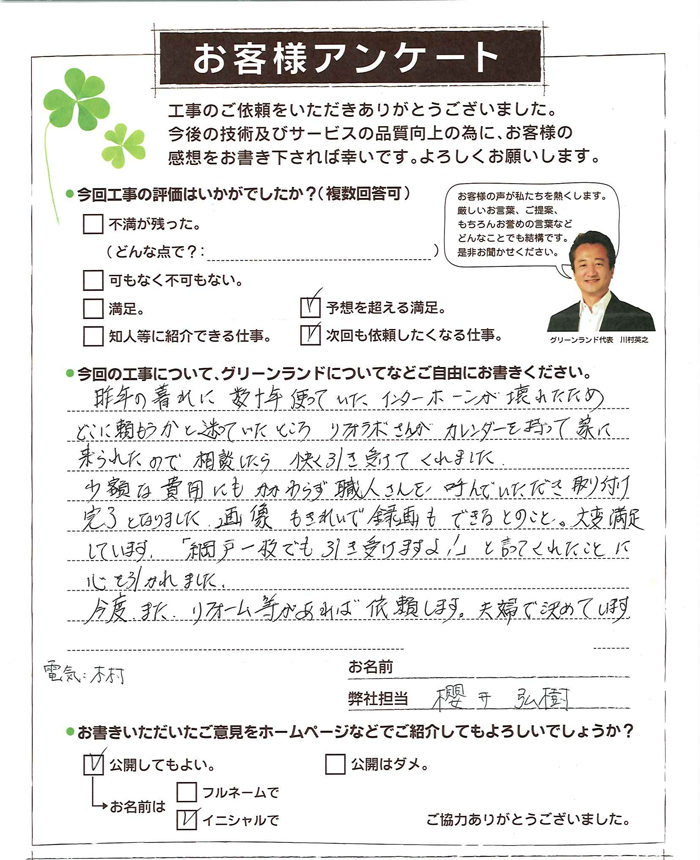 お客様アンケート
工事のご依頼をいただきありがとうございました。
今後の技術及びサービスの品質向上の為に、お客様の
感想をお書き下されば幸いです。よろしくお願いします。
●今回工事の評価はいかがでしたか？（複数回答可）
不満が残った。
（どんな点で？：　）
可もなく不可もない。
満足。
予想を超える満足。
知人等に紹介できる仕事。
次回も依頼したくなる仕事。
お客様の声が私たちを熱くします。
厳しいお言葉、ご提案、
もちろんお誉めの言葉など
どんなことでも結構です。
是非お聞かせください。
グリーンランド代表　川村英之
●今回の工事について、グリーンランドについてなどご自由にお書きください。
昨年の暮れに 数十年使っていた インターホーンが 壊れたため
どこに頼もうかと迷っていたところ リフォラボさんが カレンダーを持って 家に
来られたので 相談したら 快く引き受けて くれました.
少額な費用にもかかわらず 職人さんを 呼んでいただき 取り付け
完了となりました. 画像 もきれいで 録画も できるとのこと。大変満足
しています. 「網戸一枚でも 引き受けますよ!」と言ってくれたことに
心を引かれました.
今度.また. リフォーム等があれば 依頼します。夫婦で決めています
電気:木村
お名前
弊社担当 櫻井 弘樹
●お書きいただいたご意見をホームページなどでご紹介してもよろしいでしょうか？
公開してもよい。
公開はダメ。
お名前は
フルネームで
イニシャルで
ご協力ありがとうございました。